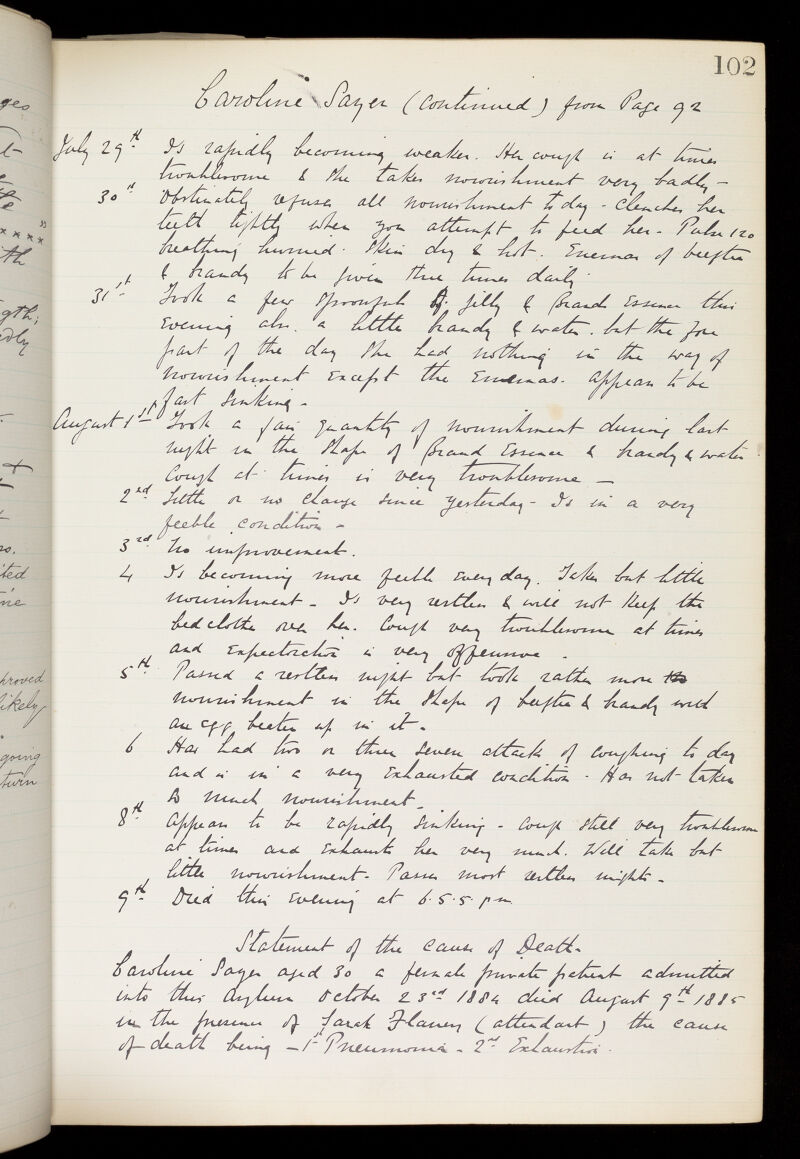 102
Caroline Sayer (continued) from Page 92
July 29th Is rapidly becoming weaker. Her cough is at times
troublesome & she takes nourishment very badly -
30th Obstinately refuses all nourishment today - clenches her
teeth tightly when you attempt to feed her - Pulse 120
breathing hurried. Skin dry & hot. Enemas of beeftea
& brandy to be given three times daily
31st Took a few spoonfuls of jelly & Brands Essence this
evening also a little brandy & water. but the fore
part of the day she had nothing in the way of
nourishment except the Enemas. Appears to be
fast sinking -
August 1st Took a fair quantity of nourishment during last
night in the shape of Brand Essence & brandy & water
Cough at times is very troublesome -
2nd Little or no change since yesterday - Is in a very
feeble condition -
3rd No improvement.
4 Is becoming more feeble every day. Takes but little
nourishment - Is very restless & will not keep the
bedclothes over her. Cough very troublesome at times
and Expectoration is very offensive -
5th Passed a restless night but took rather more
nourishment in the shape of beeftea & brandy with
an egg beaten up in it -
6 Has had two or three severe attacks of coughing to day
and is in a very exhausted condition - Has not taken
so much nourishment -
8th Appears to be rapidly sinking - Cough still very troublesome
at times and exhausts her very much. Will take but
little nourishment - Passes most restless nights -
9th Died this Evening at 6.55. pm
Statement of the cause of Death -
Caroline Sayer aged 30 a female private patient admitted
into this Asylum October 23rd 1884 died August 9th 1885
in the presence of Sarah (attendant) the cause
of death being - 1st Pneumonia - 2nd Exhaustion.